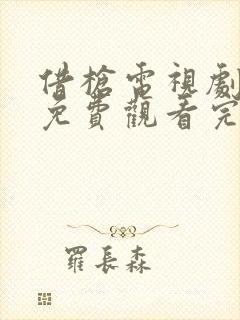 借槍電視劇
免費觀看完
羅長森